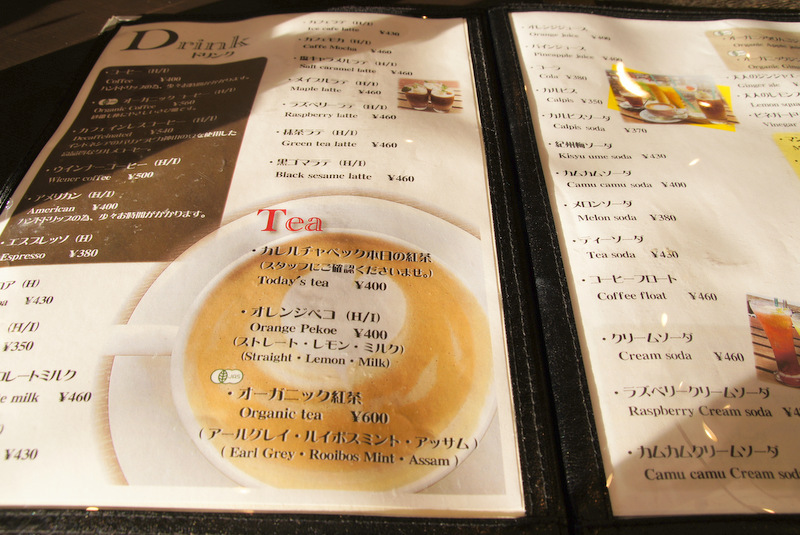 Drink
ドリンク
・コーヒー (H/I)
Coffee ¥400
ハンドドリップの為、少々お時間がかかります。
オーガニックコーヒー (H/I)
Organic Coffee ¥560
・カフェインレスコーヒー (H/I)
Decaffeinated ¥540
・ウインナーコーヒー (H/I)
Wiener coffee ¥500
・アメリカン (H/I)
American ¥400
ハンドドリップの為、少々お時間がかかります。
・エスプレッソ (H)
Espresso ¥380
コア (H)
oa ¥430
(H/I)
¥350
コレートミルク
e milk ¥460
¥430
・カフェラテ (H/I)
Ice cafe latte ¥430
・カフェモカ (H/I)
Caffe Mocha ¥460
・塩キャラメルラテ (H/I)
Salt caramel latte ¥460
・メイプルラテ (H/I)
Maple latte ¥460
・ラズベリーラテ (H/I)
Raspberry latte ¥460
・抹茶ラテ (H/I)
Green tea latte ¥460
・黒ゴマラテ (H/I)
Black sesame latte ¥460
Tea
・カレルチャペック本日の紅茶
(スタッフにご確認くださいませ。)
Today's tea ¥400
・オレンジペコ (H/I)
Orange Pekoe ¥400
(ストレート・レモン・ミルク)
(Straight・Lemon・Milk)
JAS
・オーガニック紅茶
Organic tea ¥600
(アールグレイ・ルイボスミント・アッサム)
(Earl Grey・Rooibos Mint・Assam)
・オレンジジュース
Orange juice ¥400
・パインジュース
Pineapple juice ¥400
・コーラ
Cola ¥380
・カルピス
Calpis ¥350
・カルピスソーダ
Calpis soda ¥370
・紀州梅ソーダ
Kisyu ume soda ¥430
・カムカムソーダ
Camu camu soda ¥400
・メロンソーダ
Melon soda ¥380
・ティーソーダ
Tea soda ¥430
・コーヒーフロート
Coffee float ¥460
・クリームソーダ
Cream soda ¥460
・ラズベリークリームソーダ
Raspberry Cream soda
・カムカムクリームソーダ
Camu camu Cream soda
Organic Apple
Organic
・大人のジンジャ
Ginger ale
・大人のレモン
Lemon squa
・ビネガード
Vinegar